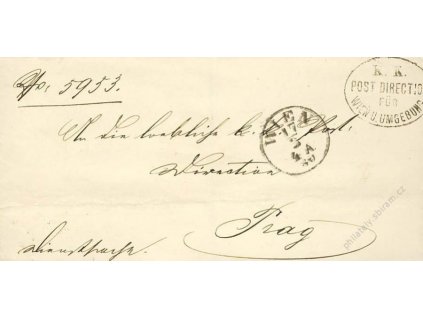 No: 5953.
K. K.
POST DIRECTIO
FÜR
WIEN U. UMGEBUNG
An die loebliche k. k. Post:
WIEN
17
5
4 A
Direction
Prag
Dienstsache.
philately-sbiram.cz